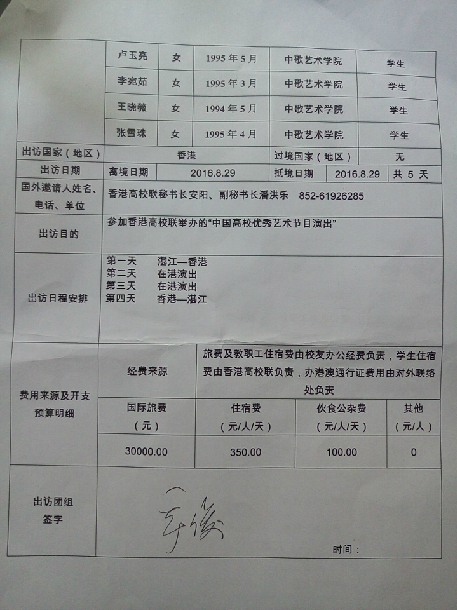 卢玉亮 女 1995年5月 中歌艺术学院 学生
李宛茹 女 1995年3月 中歌艺术学院 学生
王晓 女 1994年5月 中歌艺术学院 学生
张雪 女 1995年4月 中歌艺术学院 学生
出访国家（地区） 香港 过境国家（地区） 无
出访日期 离境日期 2016.8.29 抵境日期 2016.8.29 共 5 天
国外邀请人姓名、
电话、单位
香港高校联秘书长安阳、副秘书长潘洪乐 852-61925285
出访目的
参加香港高校联举办的“中国高校优秀艺术节目演出”
出访日程安排
第一天 湛江—香港
第二天 在港演出
第三天 在港演出
第四天 香港—湛江
费用来源及开支
预算明细
经费来源
旅费及教职工住宿费由校友办公经费负责，学生住宿
费由香港高校联负责，办港澳通行证费用由对外联络
处负责
国际旅费
（元）
住宿费
（元/人/天）
伙食公杂费
（元/人/天）
其他
（元/人）
30000.00 350.00 100.00 0
出访团组
签字
时间：